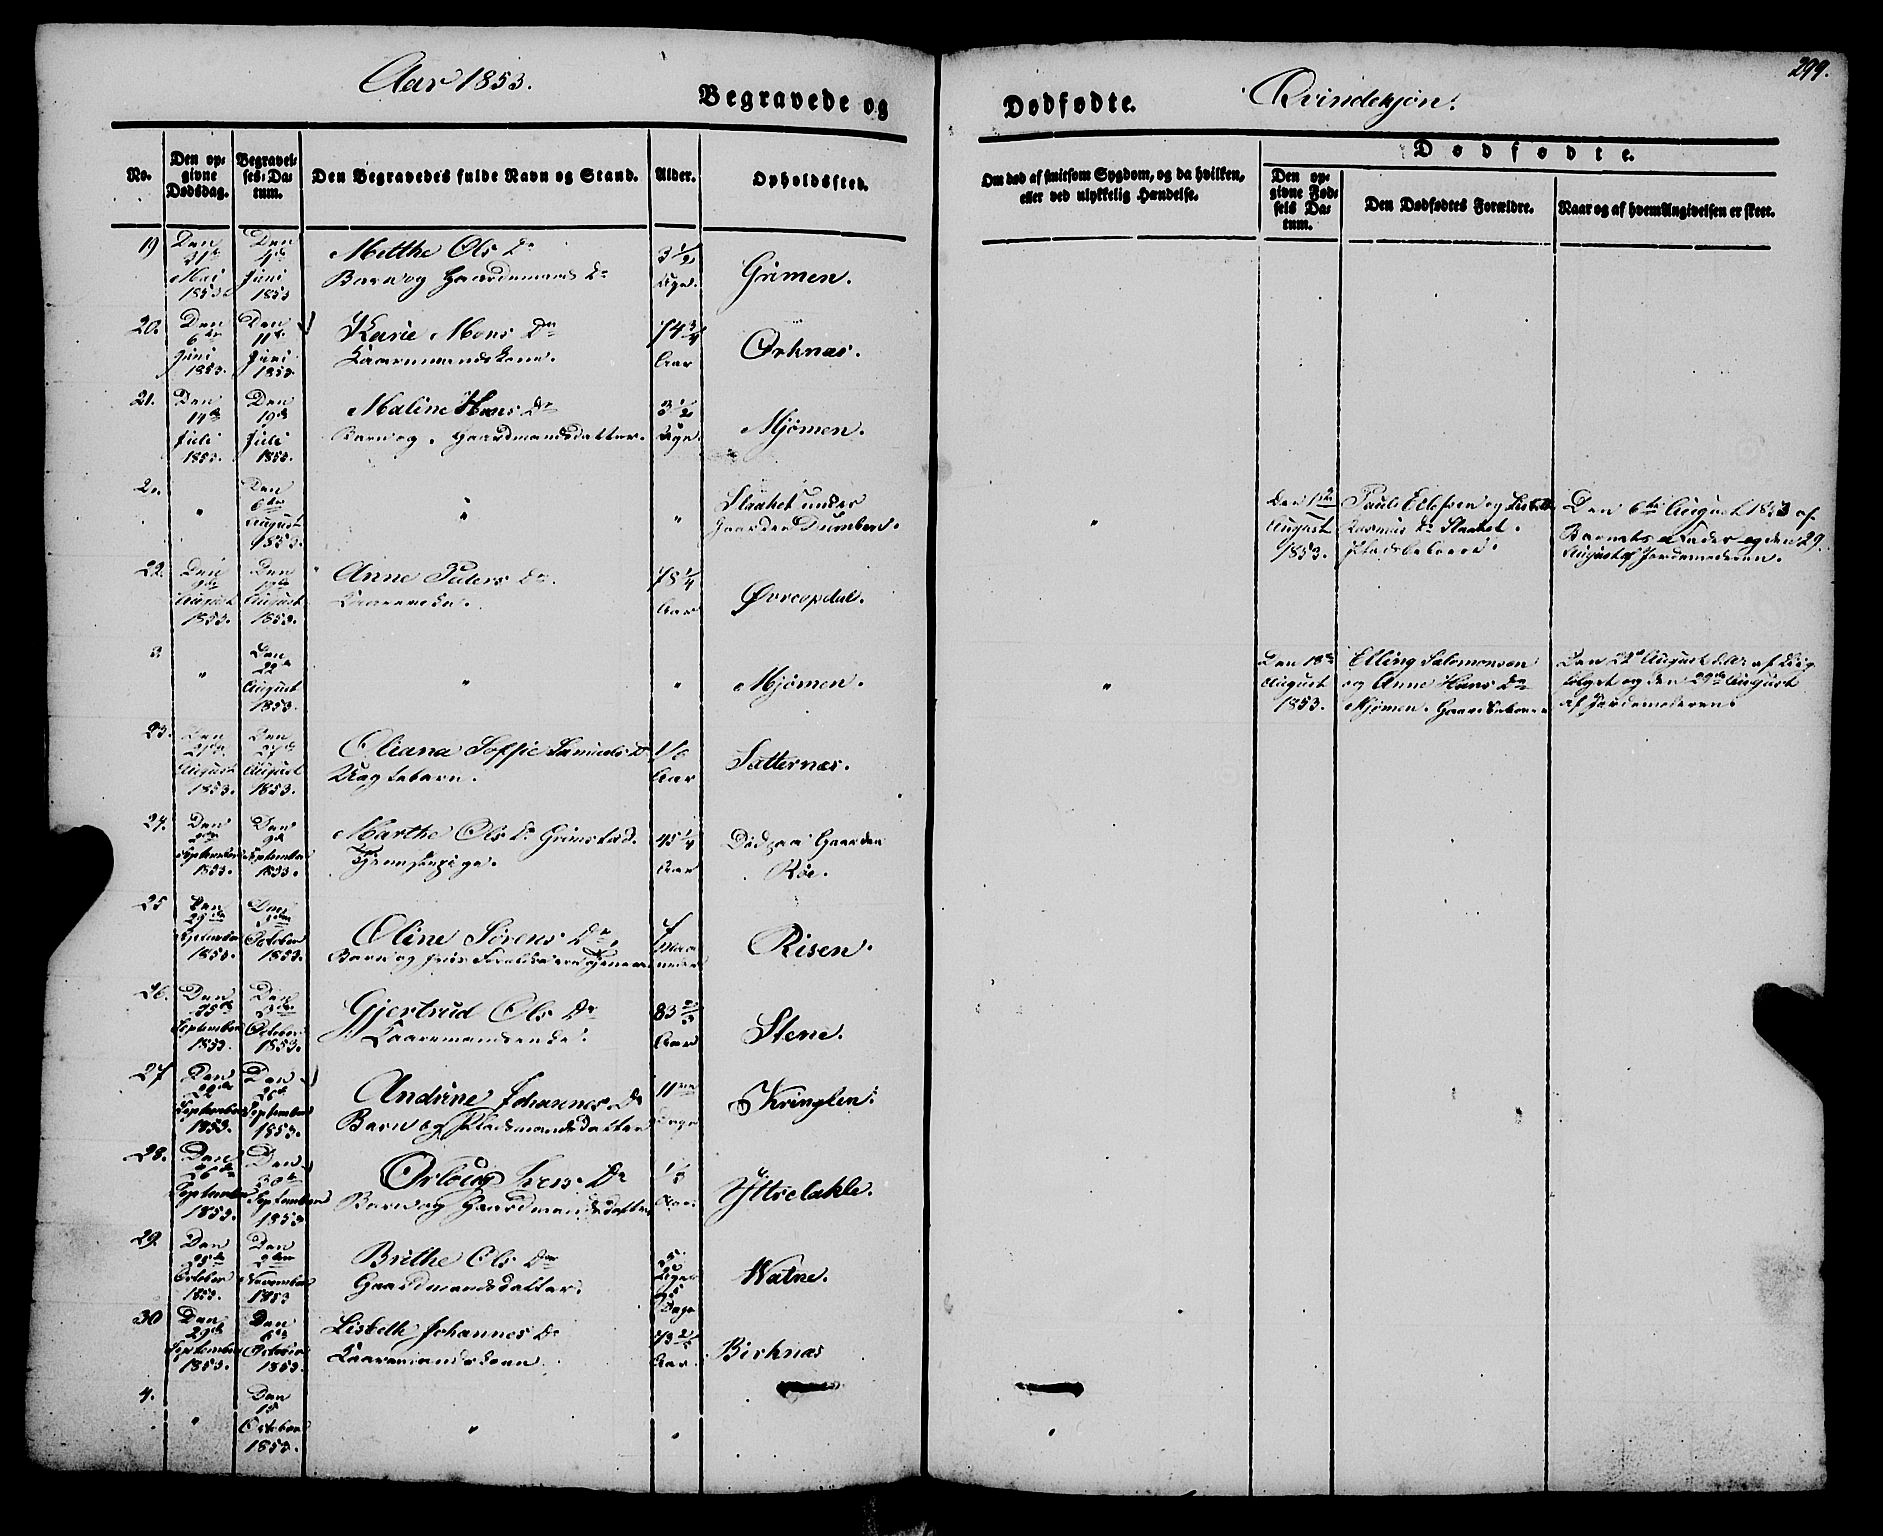 Aar 1853.
Begravede og
Dødfødte.
Qvindekjøn.
299.
No.
Den op-
givne
Dødsdag.
Begravel-
ses-Da-
tum.
Den Begravedes fulde Navn og Stand.
Alder.
Opholdssted.
Om død af smitsom Sygdom, og da hvilken,
eller ved ulykkelig Hændelse.
Dødfødte.
Den op-
givne Fød-
sels Da-
tum.
Den Dødfødtes Forældre.
Naar og af hvem Angivelsen er skeet.
19
Den
31te
Mai
1853.
Den
Juni
1853
Metthe Ols Dr
Barn og Gaardmands Dr
3 1/2
Uge.
Grimen.
20.
Den
6te
Juni
1853.
Den
11te
Juni
1853.
Karie Mons Dr
Kaarmandskone.
74 3/4
Aar
Ørknæs.
21.
Den
14de
Juli
1853.
Den
19de
Juli
1853.
Maline Hans Dr
Barn og Gaardmandsdatter.
3 1/2
Uge.
Mjømen.
2.
"
Den
6te
August
1853.
"
"
under
Gaarden
"
Den
August
1853.
Rasmus Dr
Den 6te August 1853 af
Barnets Fader og den 29.
August af Jordemoderen.
22.
Den
August
1853.
Den
August
1853.
Anne Peders Dr.
78 1/4
Aar
Øvreopdal.
3
"
Den
22de
August
1853.
"
"
Mjømen.
"
Den 18de
August
1853.
Elling Salomonsen
og Anne Hans Dr
Mjømen. Gaardbeboere
Den 22de August d.A. af
og den 29de August
af Jordemoderen.
23.
Den
August
1853.
Den
27de
August
1853.
Oliana Soffie Samuels Dr
Uægtebarn.
1/6
Aar
Sætternæs.
24.
Den
September
1853.
Den
September
1853.
Marthe Ols Dr Grimstad.
Tjenestepige.
45 1/4
Aar
Død paa Gaarden
Røe.
25
Den
29de
September
1853.
Den
October
1853.
Oline Sørens Dr.
Barn og
Risen.
26.
Den
25de
September
1853.
Den
3die
October
1853.
Gjertrud Ols Dr
Kaarmandsenke.
83 2/3
Aar
Stene.
27
Den
22de
September
1853.
Den
26de
September
1853.
Andrine Johannes Dr
Barn og Pladsmandsdatter
11
Dage
Kringlen.
28.
Den
26de
September
1853.
Den
30te
September
1853
Dr
Barn og Gaardmandsdatter
1/3
Aar.
Yttrelakle.
29.
Den
25de
October
1853.
Den
November
1853
Brithe Ols Dr
Gaardmandsdatter.
5
Uger
og 5
Dage
Watne.
30
Den
29de
September
1853.
Den
6te
October
1853.
Lisbeth Johannes Dr
73 2/3
Aar.
Birknæs
4.
"
Den
15
October
1853.
"
"
"